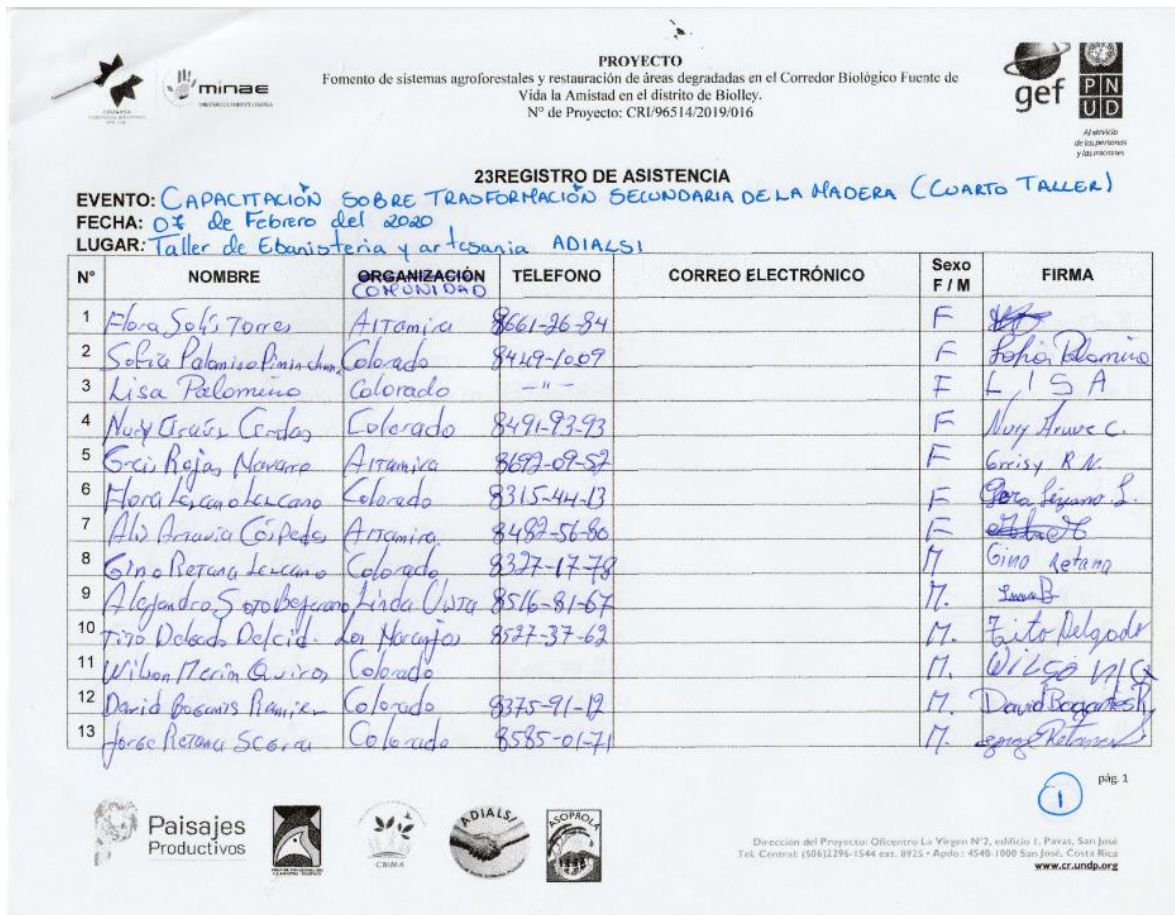 PROYECTO
Fomento de sistemas agroforestales y restauración de áreas degradadas en el Corredor Biológico Fuente de
Vida la Amistad en el distrito de Biolley.
N° de Proyecto: CRI/96514/2019/016
minae
gef
PN
UD
Al servicio
de las personas
y las naciones
23REGISTRO DE ASISTENCIA
EVENTO: CAPACITACIÓN SOBRE TRASFORMACIÓN SECUNDARIA DE LA MADERA (CUARTO TALLER)
FECHA: 07 de Febrero del 2020
LUGAR: Taller de Ebanisteria y artesania ADIALSI
N° NOMBRE ORGANIZACIÓN COMUNIDAD TELEFONO CORREO ELECTRÓNICO Sexo F / M FIRMA
1 Flora Solís Torres Altamira 8661-26-84 F
2 Sofia Palomino Colorado 8449-1009 F Sofia Palomino
3 Lisa Palomino Colorado -"- F LISA
4 Nury Colorado 8491-93-93 F Nury Arauz C.
5 Rojas Navarro Altamira 8692-09-52 F Greisy R N.
6 Flora Lezcano Lezcano Colorado 8315-44-13 F Lezcano L.
7 Altamira 8487-56-80 F
8 Gino Retana Lezcano Colorado 8327-17-78 M Gino Retana
9 Alejandro Soto Bejarano Linda Vista 8516-81-67 M.
10 Tito Delgado Delcid. Los Naranjos 8527-37-62 M. Tito Delgado
11 Wilson Quiros Colorado M.
12 David Ramirez Colorado 8375-91-12 M. David Bogantes R
13 Jorge Retana Colorado 8585-01-71 M.
pág. 1
1
Paisajes
Productivos
CBIMA
ADIALSI
ASOPROLA
Dirección del Proyecto: Oficentro La Virgen N°2, edificio 1, Pavas, San José
Tel. Central: (506)2296-1544 ext. 8925 • Apdo.: 4540-1000 San José, Costa Rica
www.cr.undp.org